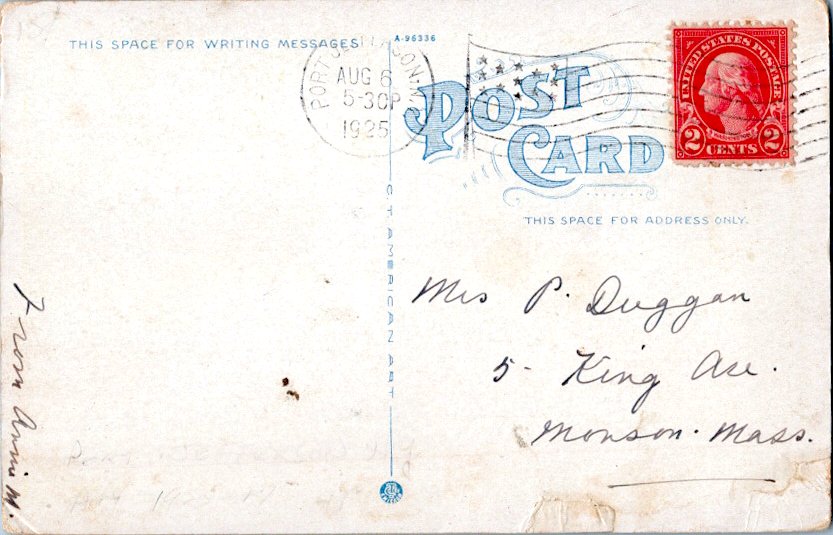 THIS SPACE FOR WRITING MESSAGES
A-96336
PORT JEFFERSON, N.Y.
AUG 6
5-30P
1925
POST CARD
UNITED STATES POSTAGE
WASHINGTON
2 CENTS 2
THIS SPACE FOR ADDRESS ONLY.
C T AMERICAN ART
Mrs P. Duggan
5- King Ave.
Monson. Mass.
From Annie M.